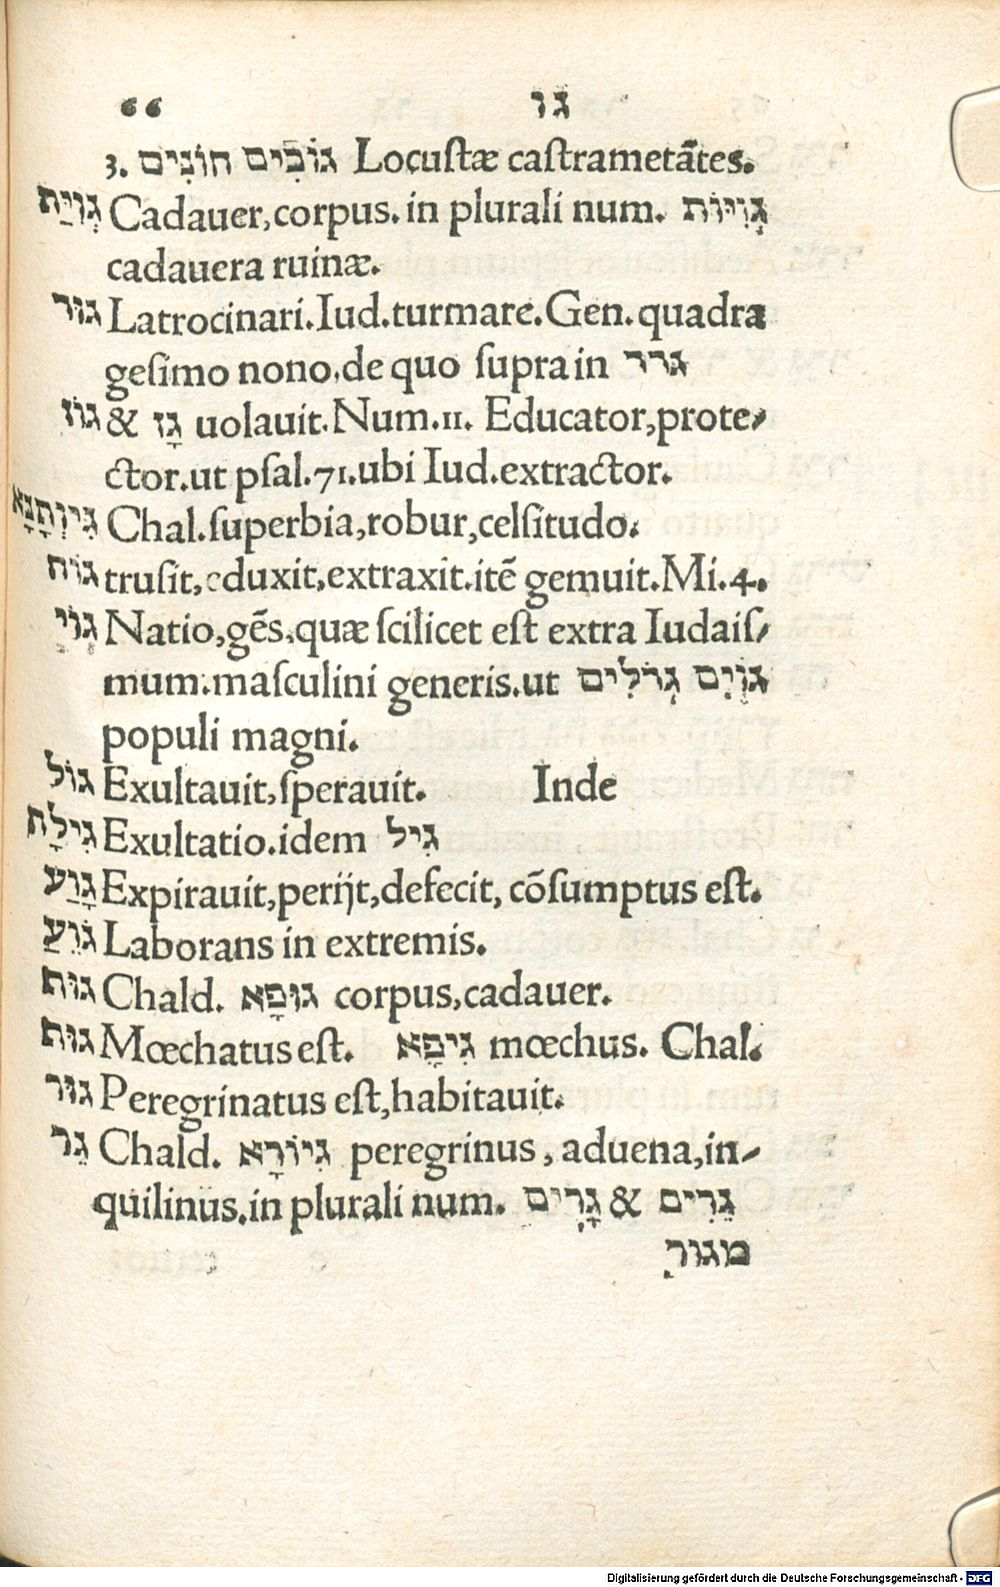 66 גו
3. גוֹבִים חוֹנִים Locustæ castrametãtes.
גְוִיַּת Cadauer,corpus. in plurali num. גְוִיּוֹת
cadauera ruinæ.
גור Latrocinari.Iud.turmare.Gen.quadra
gesimo nono,de quo supra in גרר
גוֹז & גָז uolauit.Num.11. Educator,prote-
ctor.ut psal.71.ubi Iud.extractor.
גִיוְתָנָא Chal.superbia,robur,celsitudo.
גוח trusit,eduxit,extraxit.itẽ gemuit.Mi.4.
גוֹי Natio,gẽs,quæ scilicet est extra Iudais-
mum.masculini generis.ut גוֹיִם גְדֹלִים
populi magni.
גוֹל Exultauit,sperauit. Inde
גִילָת Exultatio.idem גִיל
גָוַע Expirauit,perijt,defecit, cõsumptus est.
גֹוֵעַ Laborans in extremis.
גות Chald. גוּפָא corpus,cadauer.
גות Mœchatus est. גִיפָא mœchus. Chal.
גוּר Peregrinatus est,habitauit.
גֵר Chald. גִיוֹרָא peregrinus, aduena,in-
quilinus.in plurali num. גָרִים & גֵרִים
מגור
Digitalisierung gefördert durch die Deutsche Forschungsgemeinschaft - DFG